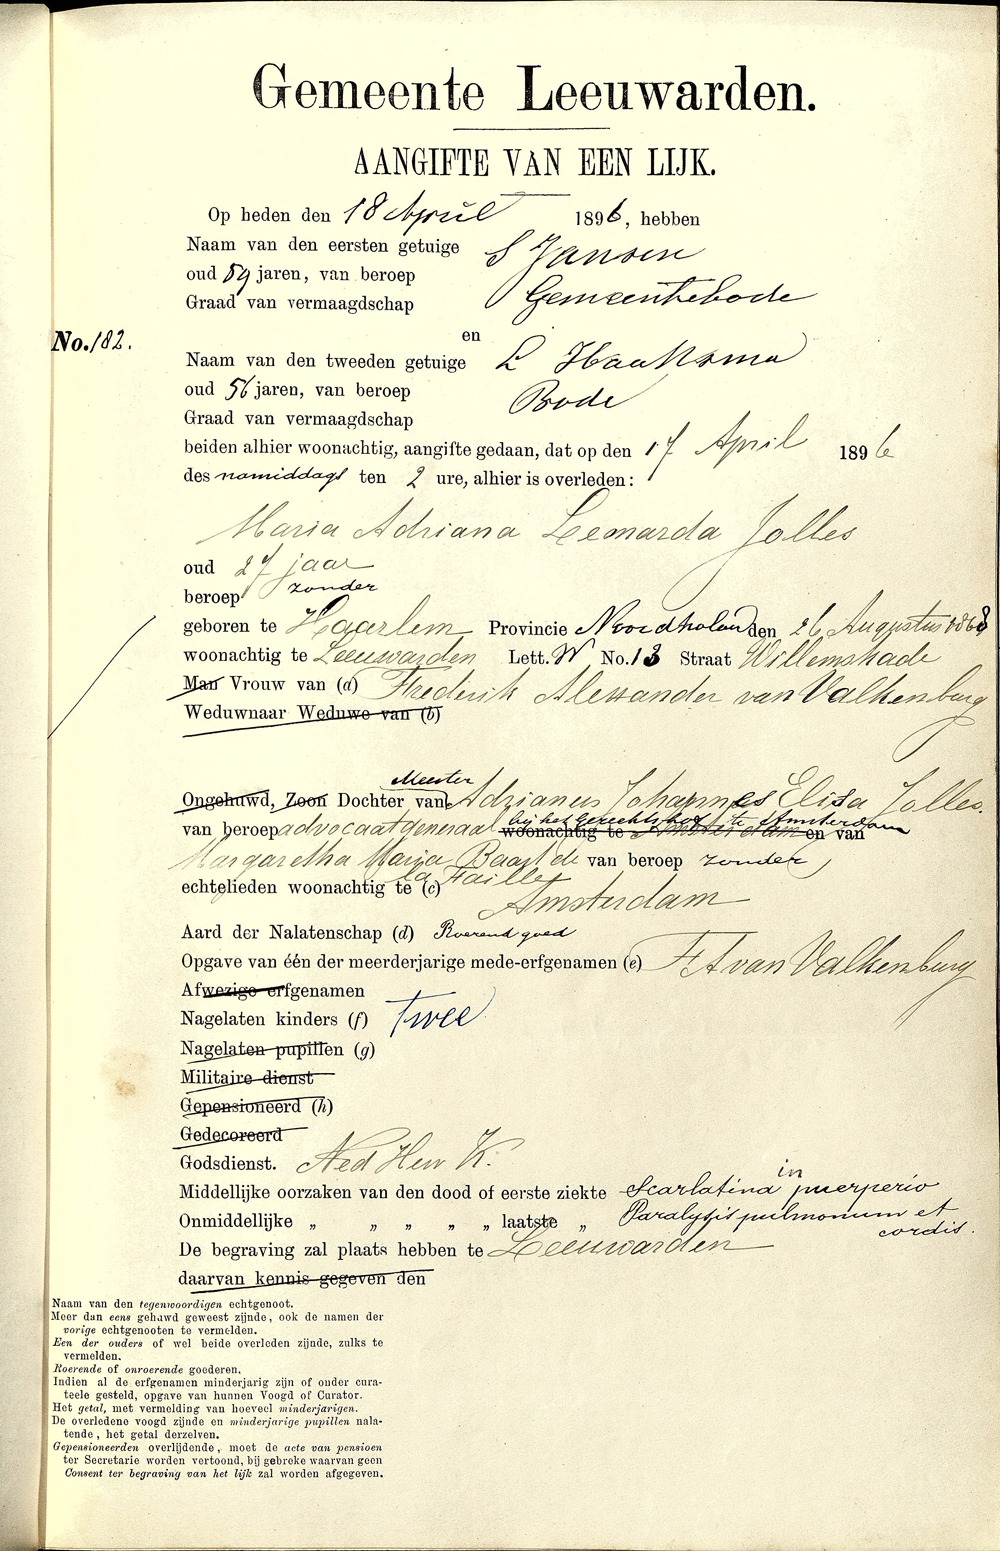 Gemeente Leeuwarden.
AANGIFTE VAN EEN LIJK.
Op heden den 18 April 1896, hebben
Naam van den eersten getuige S Jansen
oud 59 jaren, van beroep Gemeentebode
Graad van vermaagdschap
No. 182.
en
Naam van den tweeden getuige L Haaksma
oud 56 jaren, van beroep Bode
Graad van vermaagdschap
beiden alhier woonachtig, aangifte gedaan, dat op den 17 April 1896
des namiddags ten 2 ure, alhier is overleden:
Maria Adriana Leonarda Jolles
oud 27 jaar
beroep zonder
geboren te Haarlem Provincie Noordholland den 26 Augustus 1868
woonachtig te Leeuwarden Lett. W No. 13 Straat Willemskade
Man Vrouw van (a) Frederik Alexander van Valkenburg
Weduwnaar Weduwe van (b)
Meester
Ongehuwd, Zoon Dochter van Adrianus Johannes Elisa Jolles
bij het Gerechtshof te Amsterdam
van beroep advocaat generaal woonachtig te Amsterdam en van
Margaretha Maria Baart de van beroep zonder
la Faille
echtelieden woonachtig te (c) Amsterdam
Aard der Nalatenschap (d) Roerend goed
Opgave van één der meerderjarige mede-erfgenamen (e) F A van Valkenburg
Afwezige erfgenamen
Nagelaten kinders (f) twee
Nagelaten pupillen (g)
Militaire dienst
Gepensioneerd (h)
Gedecoreerd
Godsdienst. Ned Herv K.
Middellijke oorzaken van den dood of eerste ziekte Scarlatina in puerperio
Onmiddellijke „ „ „ „ „ laatste „ Paralysis pulmonum et
cordis.
De begraving zal plaats hebben te Leeuwarden
daarvan kennis gegeven den
Naam van den tegenwoordigen echtgenoot.
Meer dan eens gehuwd geweest zijnde, ook de namen der
vorige echtgenooten te vermelden.
Een der ouders of wel beide overleden zijnde, zulks te
vermelden.
Roerende of onroerende goederen.
Indien al de erfgenamen minderjarig zijn of onder cura-
teele gesteld, opgave van hunnen Voogd of Curator.
Het getal, met vermelding van hoeveel minderjarigen.
De overledene voogd zijnde en minderjarige pupillen nala-
tende, het getal derzelven.
Gepensioneerden overlijdende, moet de acte van pensioen
ter Secretarie worden vertoond, bij gebreke waarvan geen
Consent ter begraving van het lijk zal worden afgegeven.